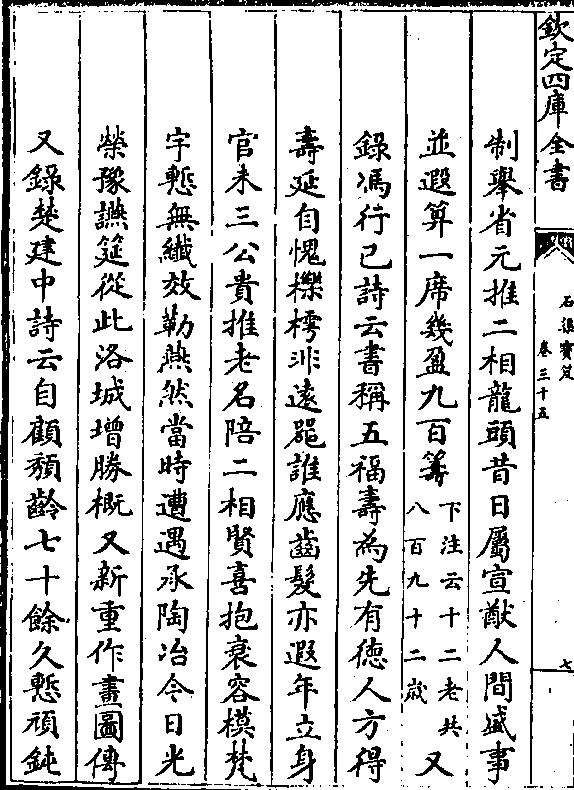 欽定四庫全書
石渠寶笈
卷三十五
七
制舉省元推二相龍頭昔日屬宣猷人間盛事
並遐算一席幾盈九百籌
下注云十二老共
八百九十二歲
又
錄馮行已詩云書稱五福壽為先有德人方得
壽延自愧櫟樗非遠器誰應齒髮亦遐年立身
官未三公貴推老名陪二相賢喜抱衰容模梵
宇慙無纖效勒燕然當時遭遇承陶冶今日光
榮豫讌筵從此洛城增勝概又新重作畫圖傳
又錄楚建中詩云自顧頽齡七十餘久慙頑鈍